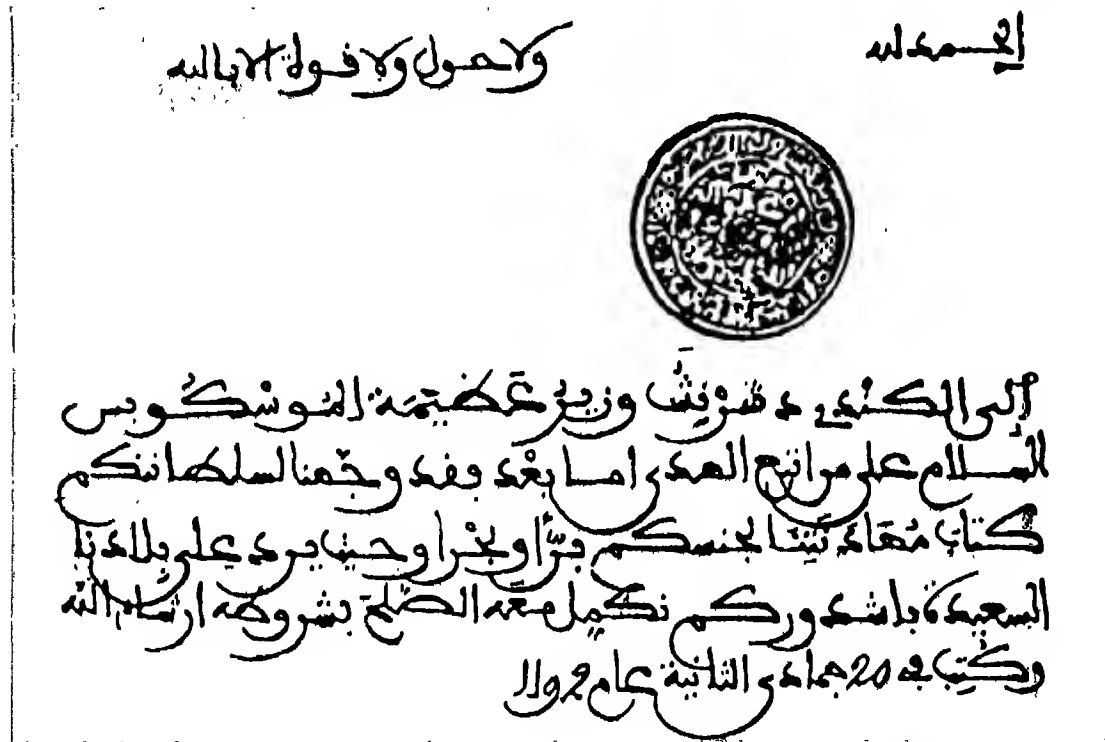 الحمد لله
ولا حول ولا قوة الا بالله
إلى الكُنْدِ دشَرْنِشَب وزير عَظيمَة المُوسْكُوبس
السلام على من اتبع الهدى اما بعْد فقد وجّهنا لسلطانتكم
كتاب مُهَادَنَتِنَا لجنسكم بَرًّا وبحْرا وحين يرد على بلادنا
السعيدة باشدوركم نكمل معه الصّلح بشروطه ان شاء الله
وكُتِب في 20 جمادى الثانية عام 1192